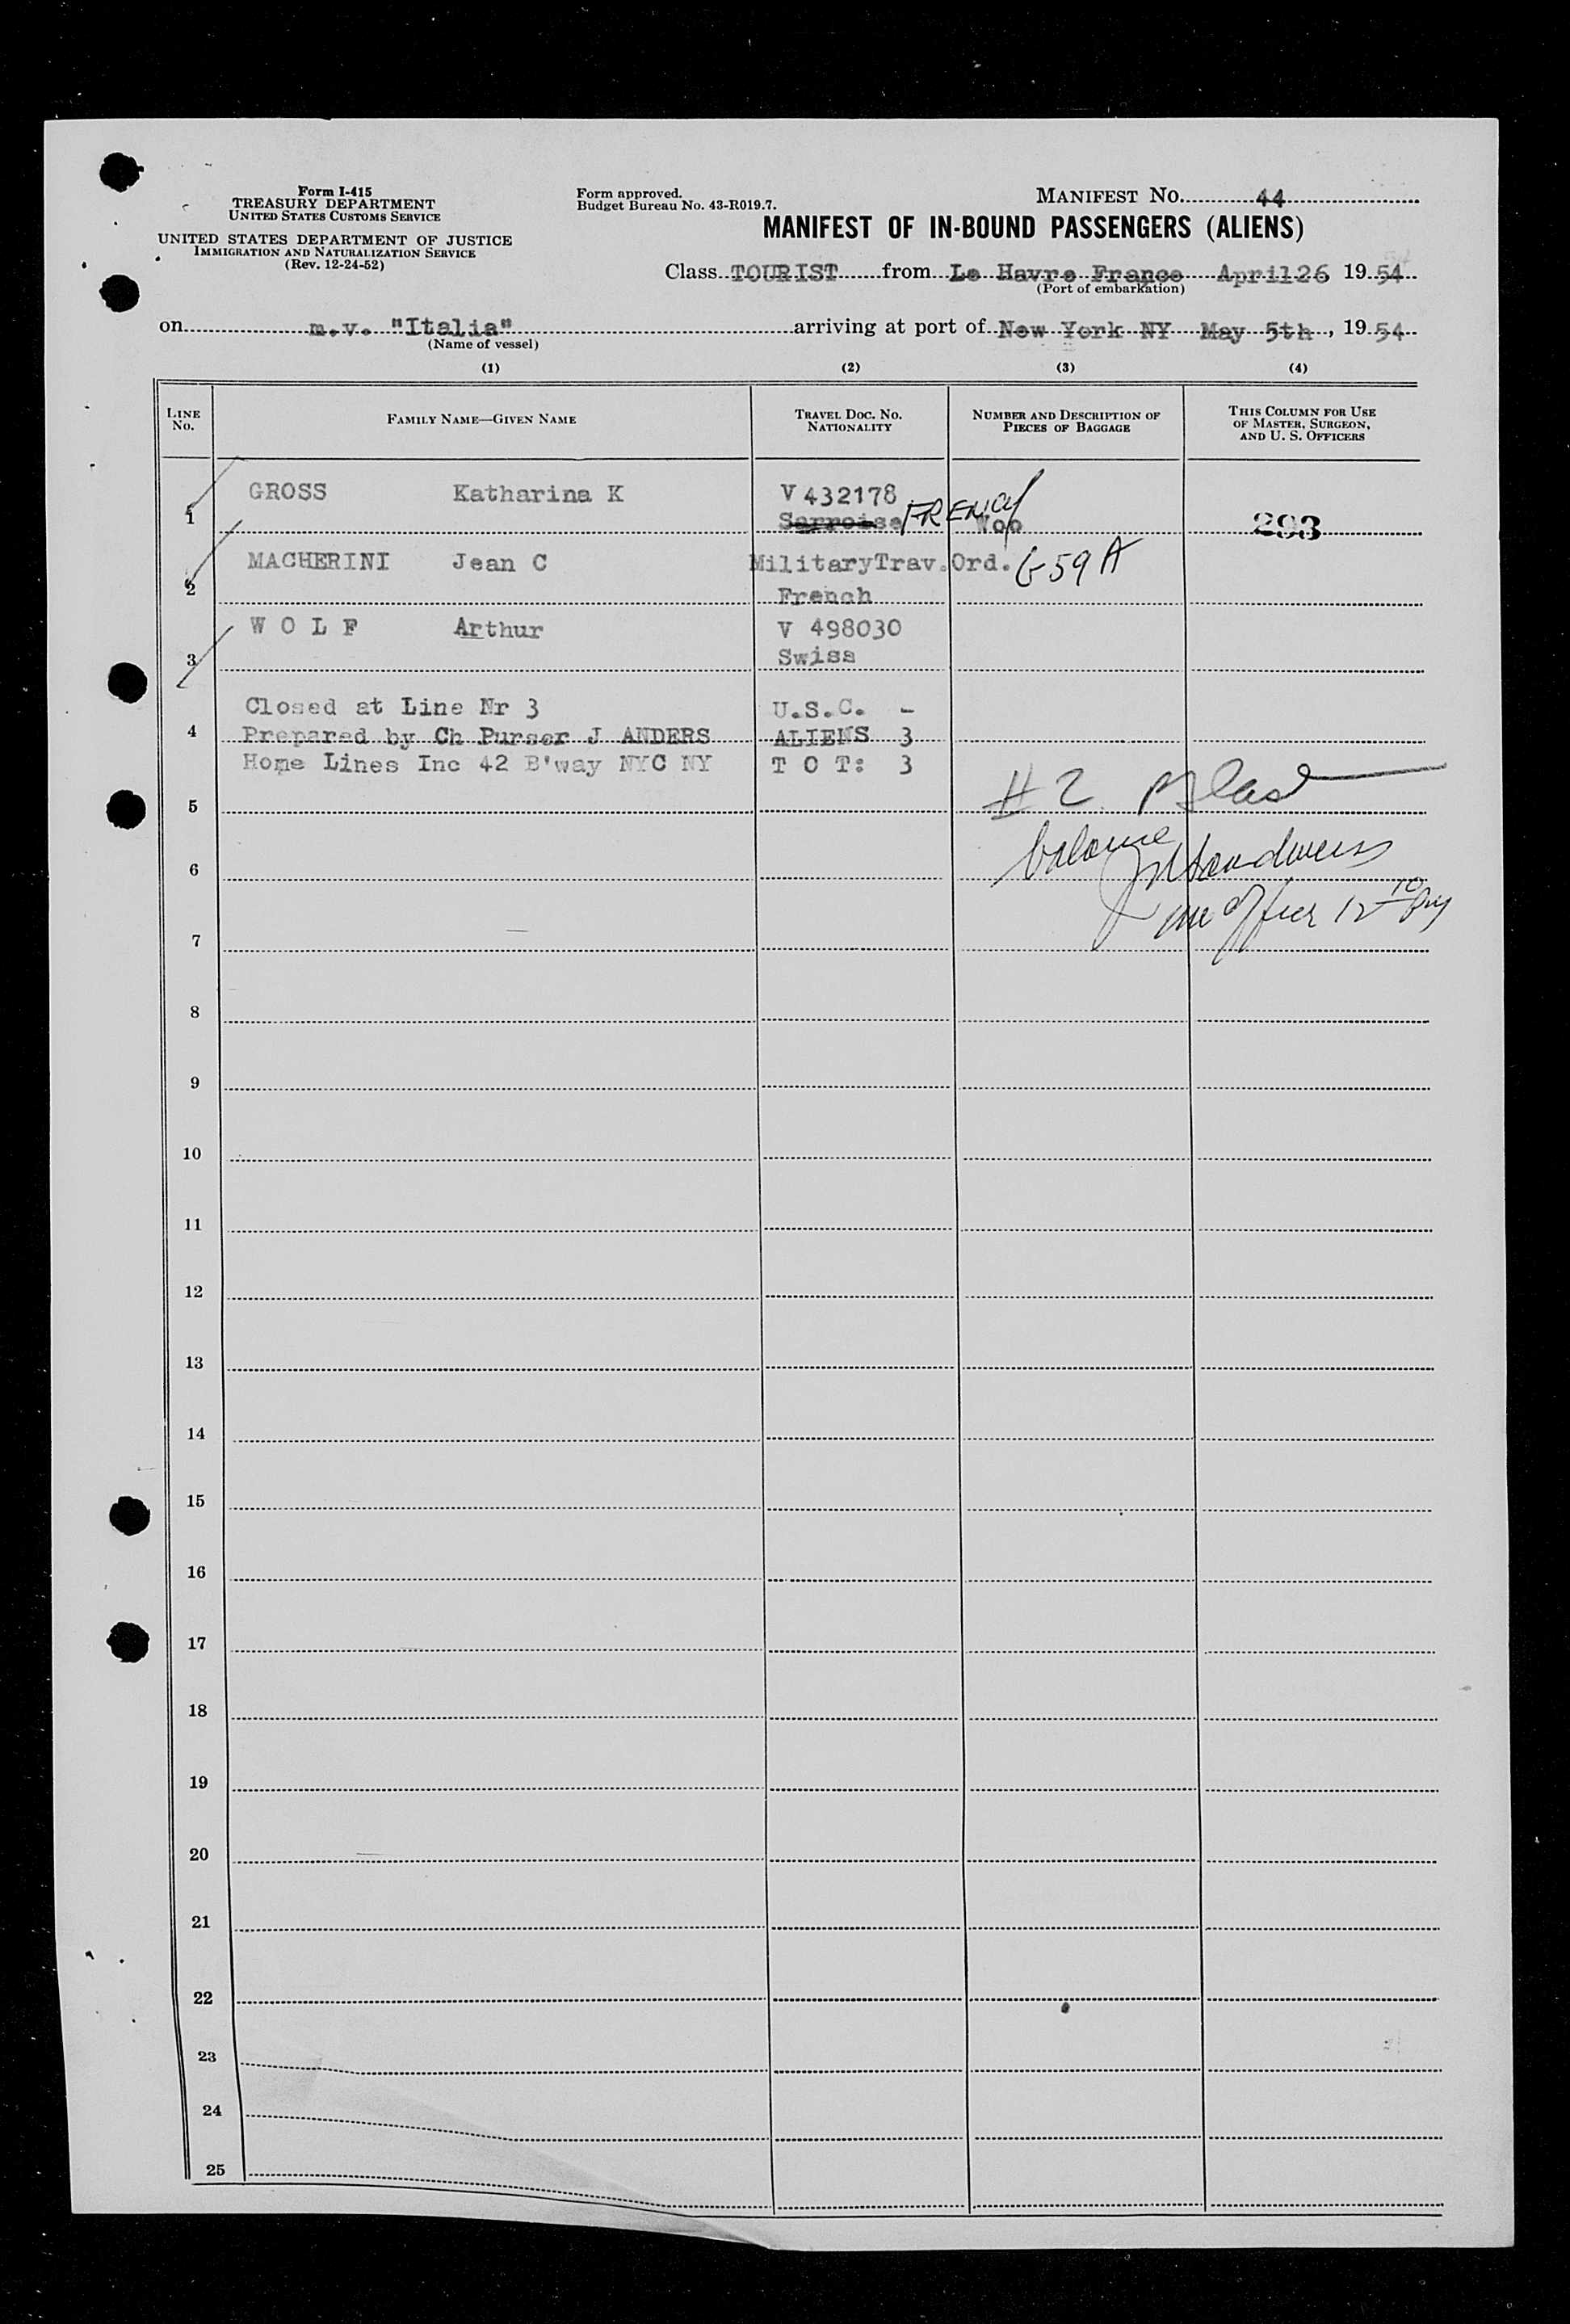 Form I-415
TREASURY DEPARTMENT
UNITED STATES CUSTOMS SERVICE
UNITED STATES DEPARTMENT OF JUSTICE
IMMIGRATION AND NATURALIZATION SERVICE
(Rev. 12-24-52)
Form approved.
Budget Bureau No. 43-R019.7.
MANIFEST NO. 44
MANIFEST OF IN-BOUND PASSENGERS (ALIENS)
Class TOURIST from Le Havre France April 26, 19 54
(Port of embarkation)
on m.v. "Italia" arriving at port of New York NY May 5th, 19 54
(Name of vessel)
(1) (2) (3) (4)
LINE No. FAMILY NAME—GIVEN NAME TRAVEL DOC. NO. NATIONALITY NUMBER AND DESCRIPTION OF PIECES OF BAGGAGE THIS COLUMN FOR USE OF MASTER, SURGEON, AND U. S. OFFICERS
GROSS Katharina K V 432178
1 Sarroise FRENCH 293
MACHERINI Jean C MilitaryTrav.Ord. G-59A
2 French
W O L F Arthur V 498030
3 Swiss
Closed at Line Nr 3 U.S.C. -
4 Prepared by Ch Purser J ANDERS ALIENS 3
Home Lines Inc 42 B'way NYC NY T O T: 3
5 #2
6 balance
7
8
9
10
11
12
13
14
15
16
17
18
19
20
21
22
23
24
25